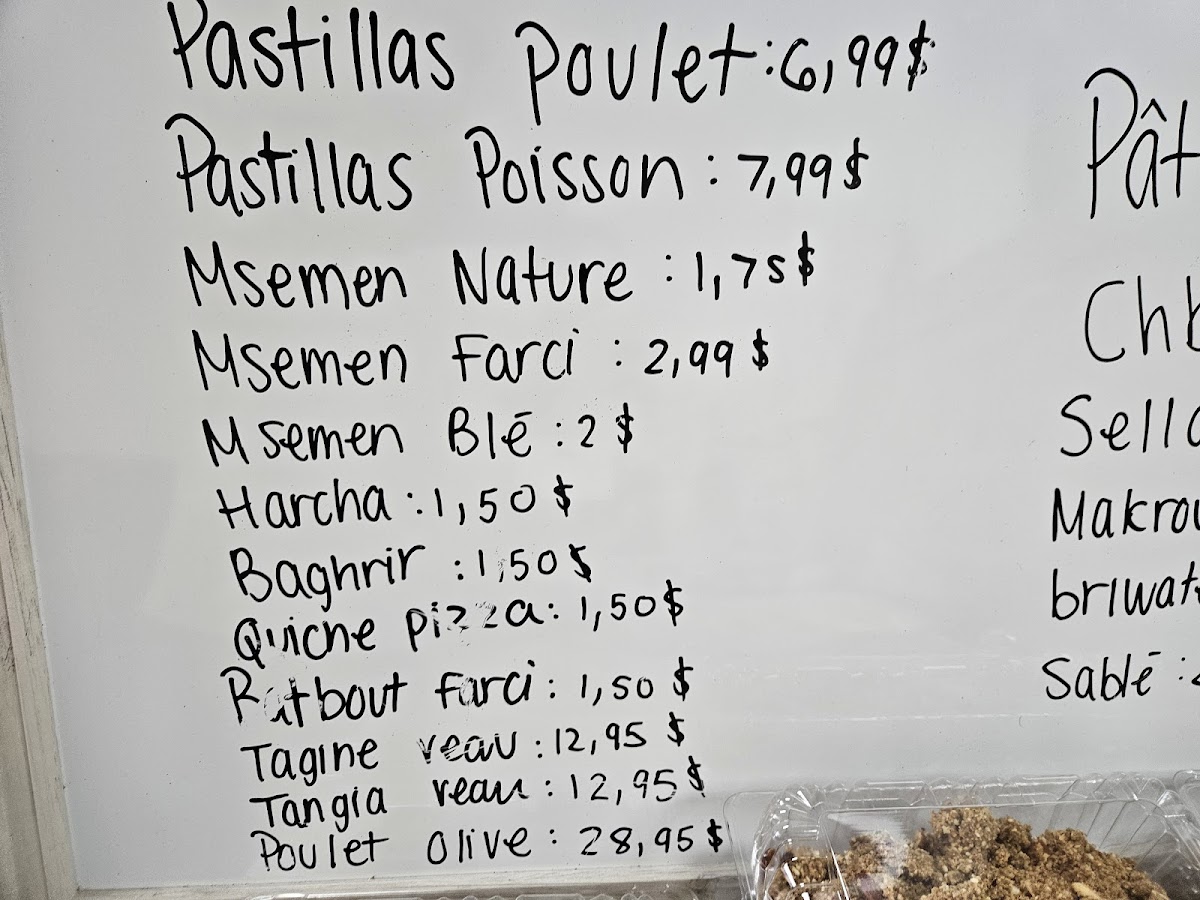 Pastillas Poulet : 6,99$
Pastillas Poisson : 7,99$
Msemen Nature : 1,75$
Msemen Farci : 2,99$
Msemen Blé : 2$
Harcha : 1,50$
Baghrir : 1,50$
Quiche pizza : 1,50$
Batbout farci : 1,50$
Tagine veau : 12,95$
Tangia veau : 12,95$
Poulet olive : 28,95$
Pât
Ch
Sell
Makrou
briwat
Sablé :